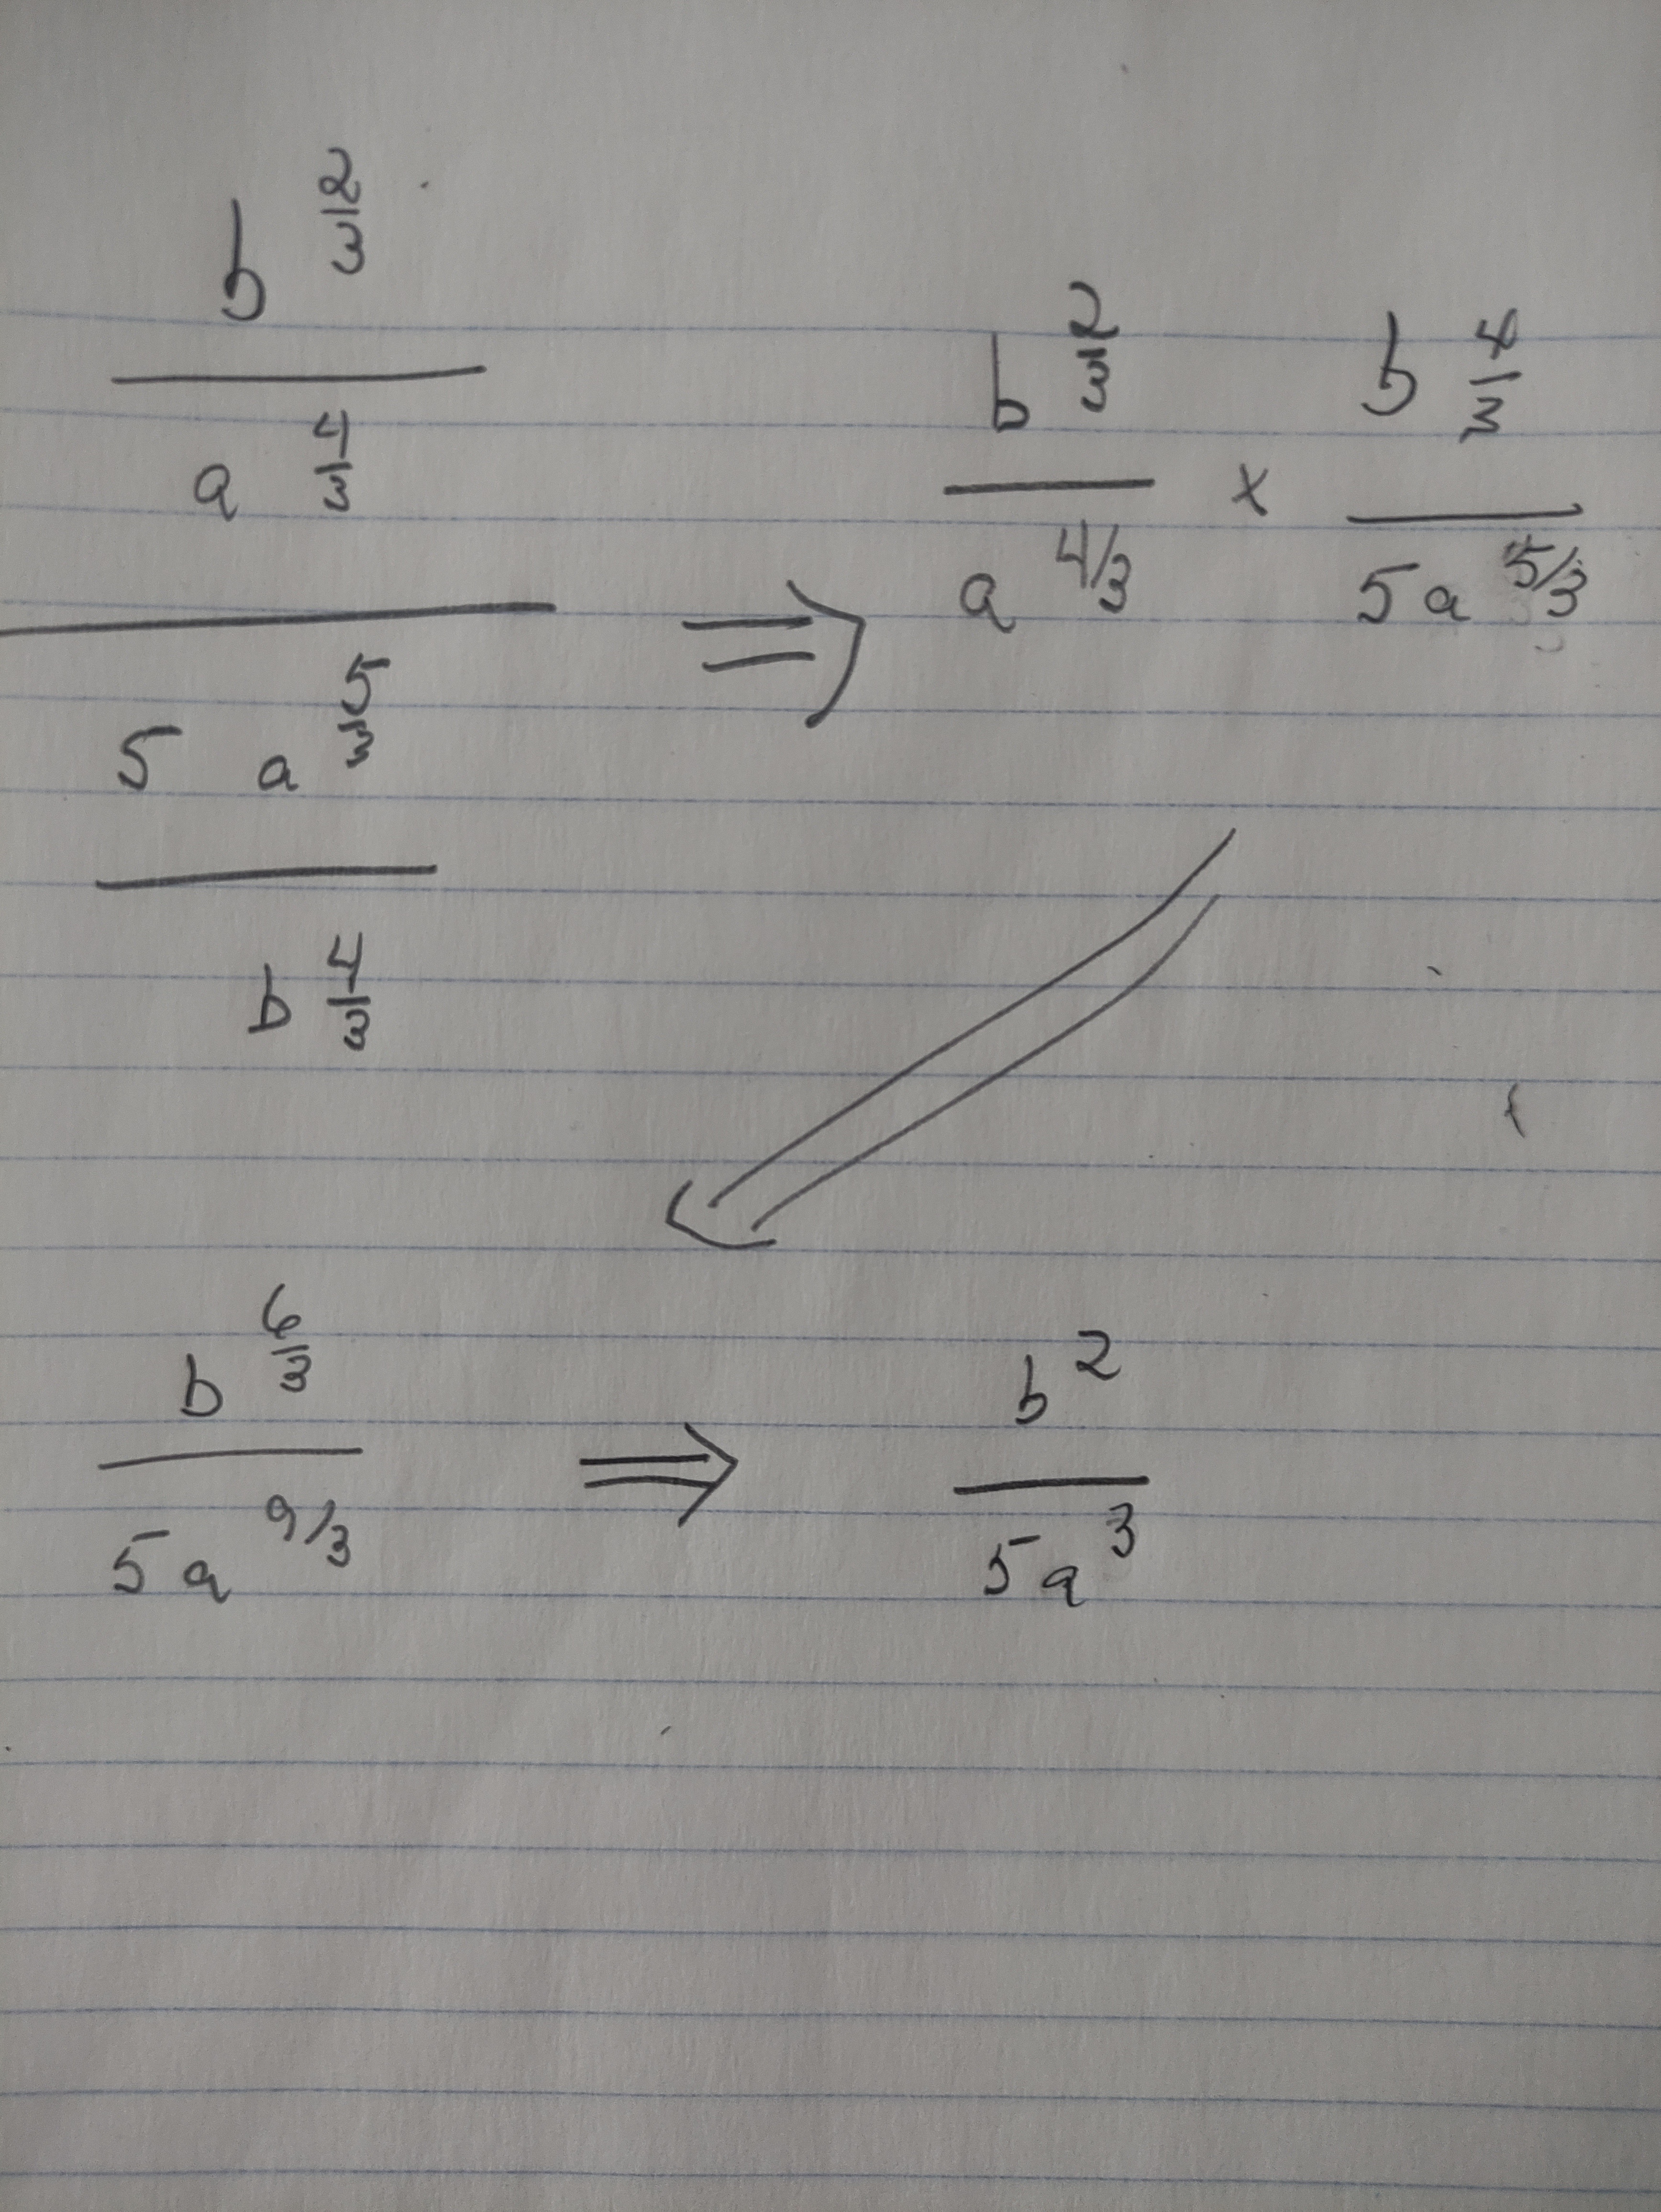 b^(2/3)
―
a^(4/3)
―――
5 a^(5/3)
―
b^(4/3)
⇒ b^(2/3) / a^(4/3) x b^(4/3) / 5a^(5/3)
⇒
b^(6/3) / 5a^(9/3) ⇒ b^2 / 5a^3